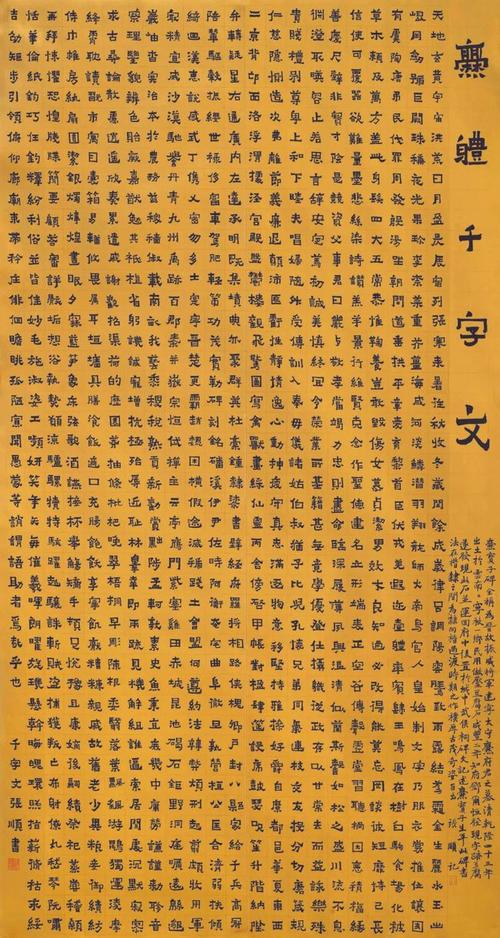 爨體千字文
爨寶子碑全稱爲晉故振威將軍建寧太守爨府君之墓清乾隆四十三年
出土於雲南鄉民用做壓豆腐咸豐二年知府鄧爾恒從現字豆腐
邊發現此石並運回府中後置於城中武侯祠碑文記述爨寶子生平此碑書
法在楷隸之間爲隸向楷過渡時期之作樸厚古茂奇姿百出張順記
天地玄黃宇宙洪荒日月盈昃辰宿列張寒來暑往秋收冬藏閏餘成歲律呂調陽雲騰致雨露結爲霜金生麗水玉出
崐岡劍號巨闕珠稱夜光果珍李柰菜重芥薑海鹹河淡鱗潛羽翔龍師火帝鳥官人皇始制文字乃服衣裳推位讓國
有虞陶唐弔民伐罪周發殷湯坐朝問道垂拱平章愛育黎首臣伏戎羌遐邇壹體率賓歸王鳴鳳在樹白駒食場化被
草木賴及萬方蓋此身髮四大五常恭惟鞠養豈敢毀傷女慕貞潔男效才良知過必改得能莫忘罔談彼短靡恃己長
信使可覆器欲難量墨悲絲染詩讚羔羊景行維賢克念作聖德建名立形端表正空谷傳聲虛堂習聽禍因惡積福緣
善慶尺璧非寶寸陰是競資父事君曰嚴與敬孝當竭力忠則盡命臨深履薄夙興溫凊似蘭斯馨如松之盛川流不息
淵澄取映容止若思言辭安定篤初誠美慎終宜令榮業所基籍甚無竟學優登仕攝職從政存以甘棠去而益詠樂殊
貴賤禮別尊卑上和下睦夫唱婦隨外受傅訓入奉母儀諸姑伯叔猶子比兒孔懷兄弟同氣連枝交友投分切磨箴規
仁慈隱惻造次弗離節義廉退顛沛匪虧性靜情逸心動神疲守真志滿逐物意移堅持雅操好爵自縻都邑華夏東西
二京背邙面洛浮渭據涇宮殿盤鬱樓觀飛驚圖寫禽獸畫彩仙靈丙舍傍啟甲帳對楹肆筵設席鼓瑟吹笙升階納陛
弁轉疑星右通廣內左達承明既集墳典亦聚群英杜稿鍾隸漆書壁經府羅將相路俠槐卿戶封八縣家給千兵高冠
陪輦驅轂振纓世祿侈富車駕肥輕策功茂實勒碑刻銘磻溪伊尹佐時阿衡奄宅曲阜微旦孰營桓公匡合濟弱扶傾
綺迴漢惠說感武丁俊乂密勿多士寔寧晉楚更霸趙魏困橫假途滅虢踐土會盟何遵約法韓弊煩刑起翦頗牧用軍
最精宣威沙漠馳譽丹青九州禹跡百郡秦并嶽宗恆岱禪主云亭雁門紫塞雞田赤城昆池碣石鉅野洞庭曠遠綿邈
巖岫杳冥治本於農務茲稼穡俶載南畝我藝黍稷稅熟貢新勸賞黜陟孟軻敦素史魚秉直庶幾中庸勞謙謹敕聆音
察理鑑貌辨色貽厥嘉猷勉其祗植省躬譏誡寵增抗極殆辱近恥林皋幸即兩疏見機解組誰逼索居閑處沉默寂寥
求古尋論散慮逍遙欣奏累遣慼謝歡招渠荷的歷園莽抽條枇杷晚翠梧桐早凋陳根委翳落葉飄颻遊鵾獨運凌摩
絳霄耽讀翫市寓目囊箱易輶攸畏屬耳垣牆具膳飡飯適口充腸飽飫烹宰飢厭糟糠親戚故舊老少異糧妾御績紡
侍巾帷房紈扇圓潔銀燭煒煌晝眠夕寐藍筍象床弦歌酒讌接杯舉觴矯手頓足悅豫且康嫡後嗣續祭祀烝嘗稽顙
再拜悚懼恐惶牋牒簡要顧答審詳骸垢想浴執熱願涼驢騾犢特駭躍超驤誅斬賊盜捕獲叛亡布射僚丸嵇琴阮嘯
恬筆倫紙鈞巧任釣釋紛利俗並皆佳妙毛施淑姿工顰妍笑年矢每催曦暉朗曜璇璣懸斡晦魄環照指薪修祜永綏
吉劭矩步引領俯仰廊廟束帶矜莊徘徊瞻眺孤陋寡聞愚蒙等誚謂語助者焉哉乎也 千字文張順書